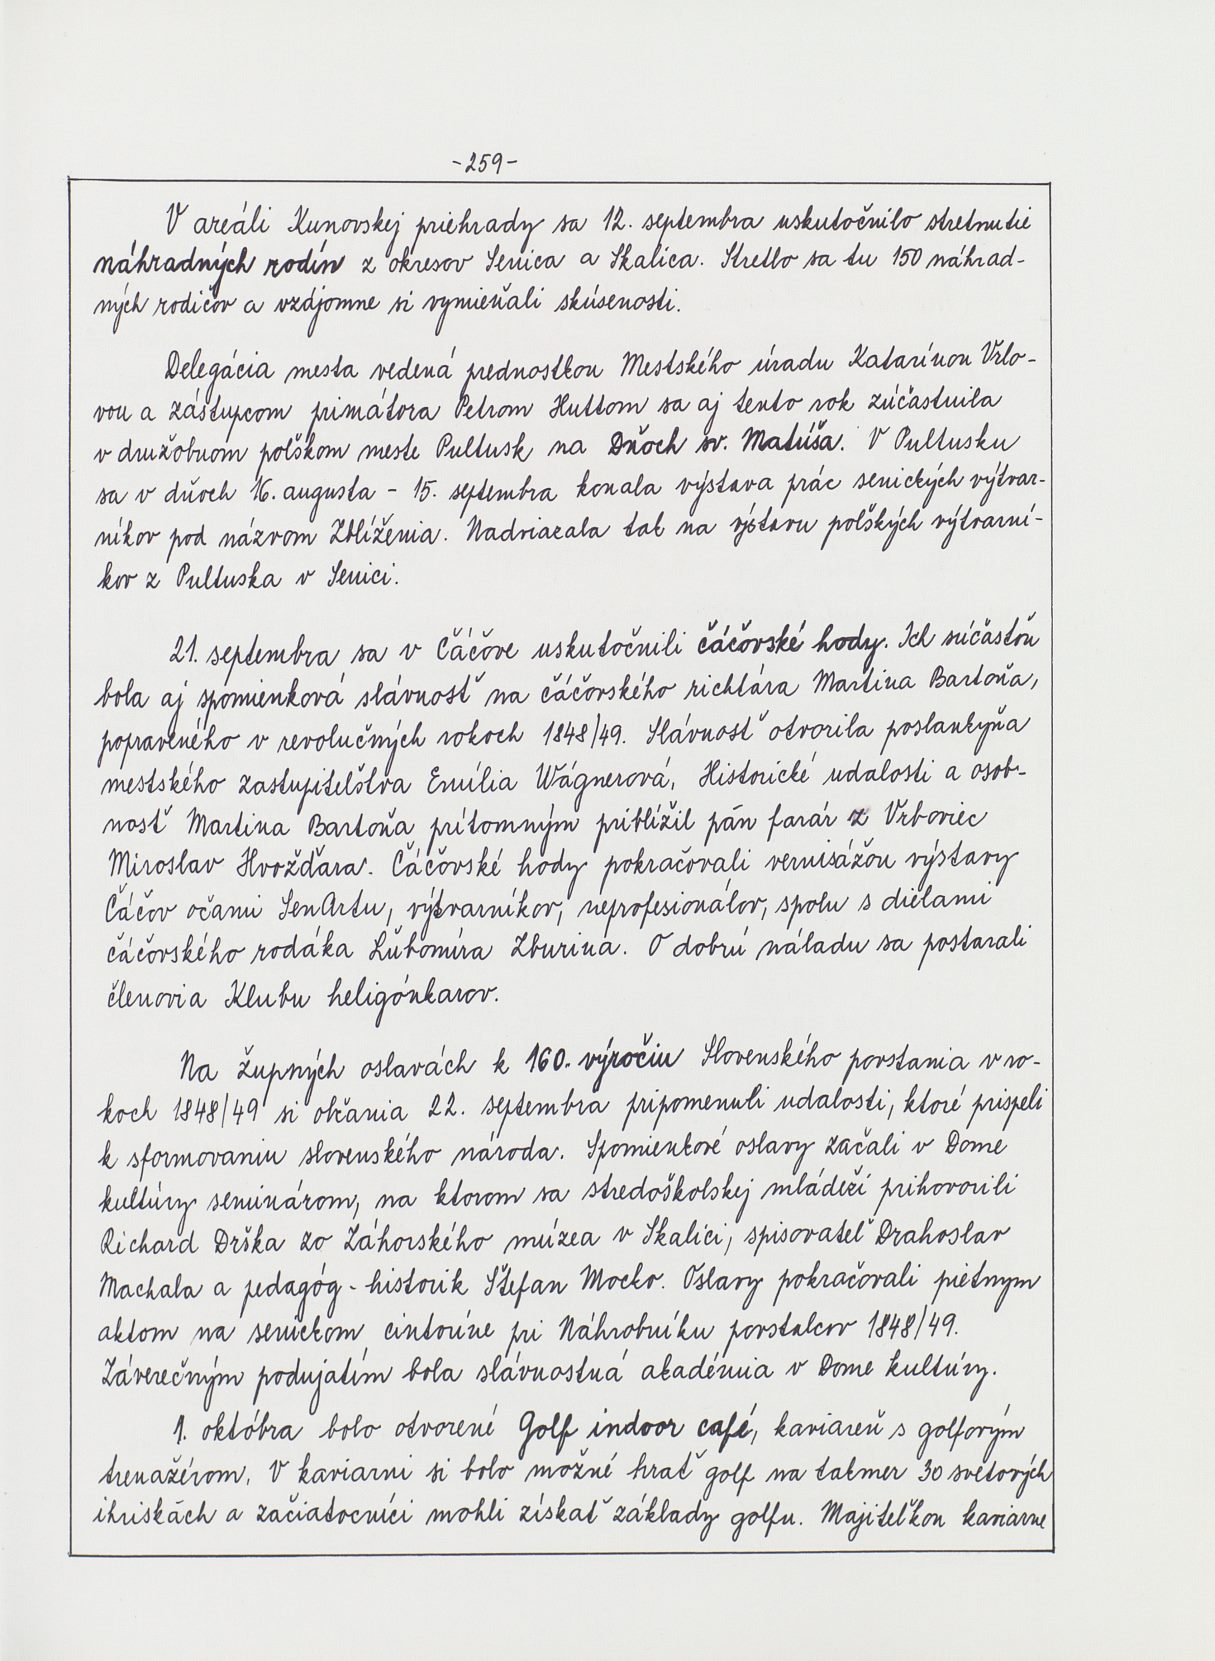 -259-
V areáli Kunovskej priehrady sa 12. septembra uskutočnilo stretnutie
náhradných rodín z okresov Senica a Skalica. Stretlo sa tu 150 náhrad-
ných rodičov a vzájomne si vymieňali skúsenosti.
Delegácia mesta vedená prednostkou Mestského úradu Katarínou Vrlo-
vou a zástupcom primátora Petrom Huttom sa aj tento rok zúčastnila
v družobnom poľškom meste Pultusk na Dňoch sv. Matúša. V Pultusku
sa v dňoch 16. augusta - 15. septembra konala výstava prác senických výtvar-
níkov pod názvom Zblíženia. Nadviazala tak na výstavu poľských výtvarní-
kov z Pultuska v Senici.
21. septembra sa v Čáčove uskutočnili čáčovské hody. Ich súčasťou
bola aj spomienková slávnosť na čáčovského richtára Martina Bartoňa,
popraveného v revolučných rokoch 1848/49. Slávnosť otvorila poslankyňa
mestského zastupiteľstva Emília Wágnerová, Historické udalosti a osob-
nosť Martina Bartoňa prítomným priblížil pán farár z Vrboviec
Miroslav Hvožďara. Čáčovské hody pokračovali vernisážou výstavy
Čáčov očami SenArtu, výtvarníkov, neprofesionálov, spolu s dielami
čáčovského rodáka Ľubomíra Zburina. O dobrú náladu sa postarali
členovia Klubu heligónkarov.
Na župných oslavách k 160. výročiu Slovenského povstania v ro-
koch 1848/49 si občania 22. septembra pripomenuli udalosti, ktoré prispeli
k sformovaniu slovenského národa. Spomienkové oslavy začali v Dome
kultúry seminárom, na ktorom sa stredoškolskej mládeži prihovorili
Richard Drška zo Záhorského múzea v Skalici, spisovateľ Drahoslav
Machala a pedagóg-historik Štefan Mocko. Oslavy pokračovali pietnym
aktom na senickom cintoríne pri Náhrobníku povstalcov 1848/49.
Záverečným podujatím bola slávnostná akadémia v Dome kultúry.
1. októbra bolo otvorené Golf indoor café, kaviareň s golfovým
trenažérom. V kaviarni si bolo možné hrať golf na takmer 30 svetových
ihriskách a začiatocníci mohli získať základy golfu. Majiteľkou kaviarne